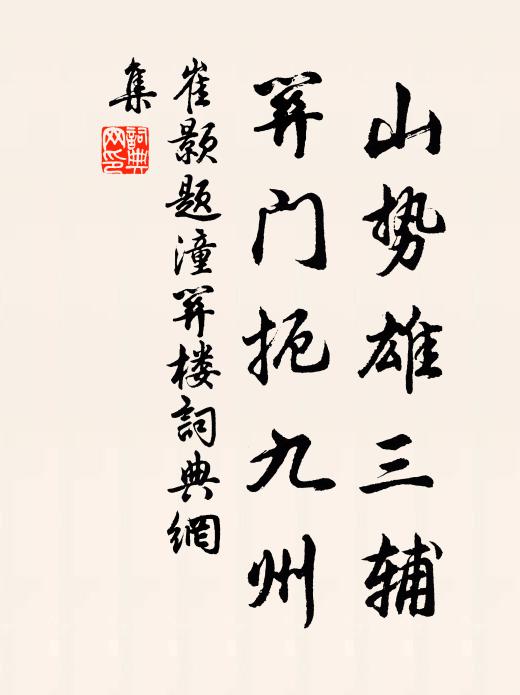 山势雄三辅
关门扼九州
崔颢题潼关楼词典網
集
詞典网印